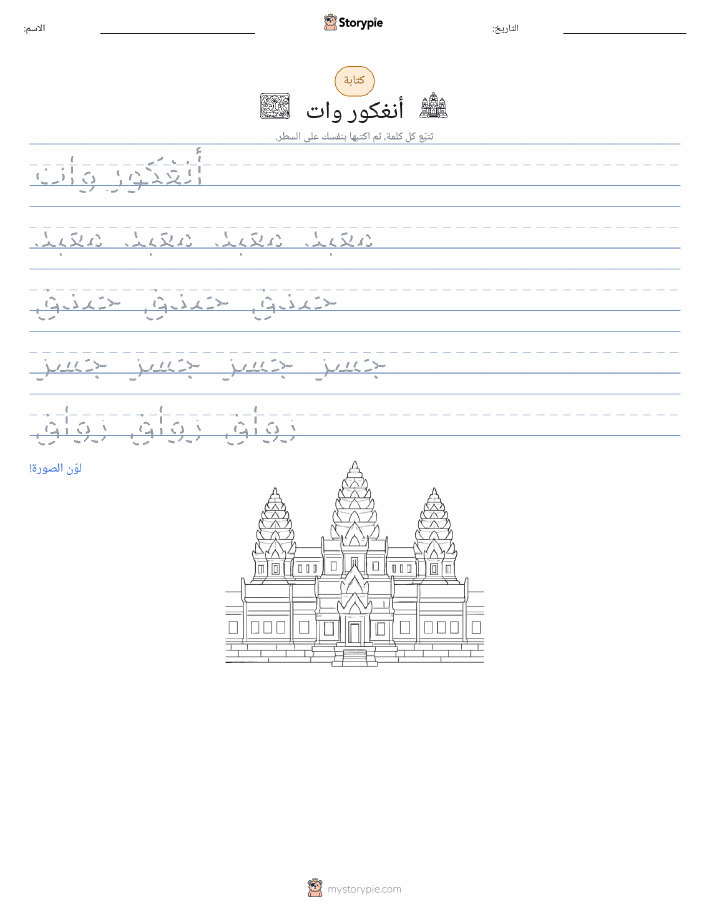 الاسم:
Storypie
التاريخ:
كتابة
أنغكور وات
تتبّع كل كلمة، ثم اكتبها بنفسك على السطر.
أنغكور وات
معبد معبد معبد معبد
خندق خندق خندق
جسر جسر جسر جسر
رواق رواق رواق
لوّن الصورة!
mystorypie.com